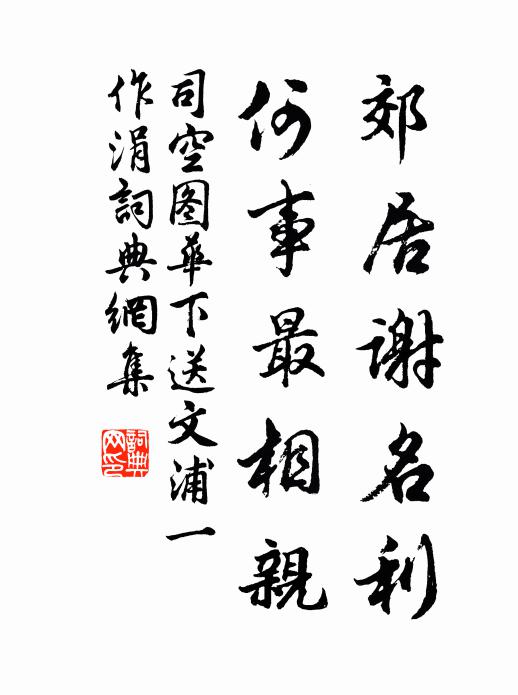 郊居謝名利
何事最相親
司空图華下送文浦一
作涓詞典網集
詞典網印